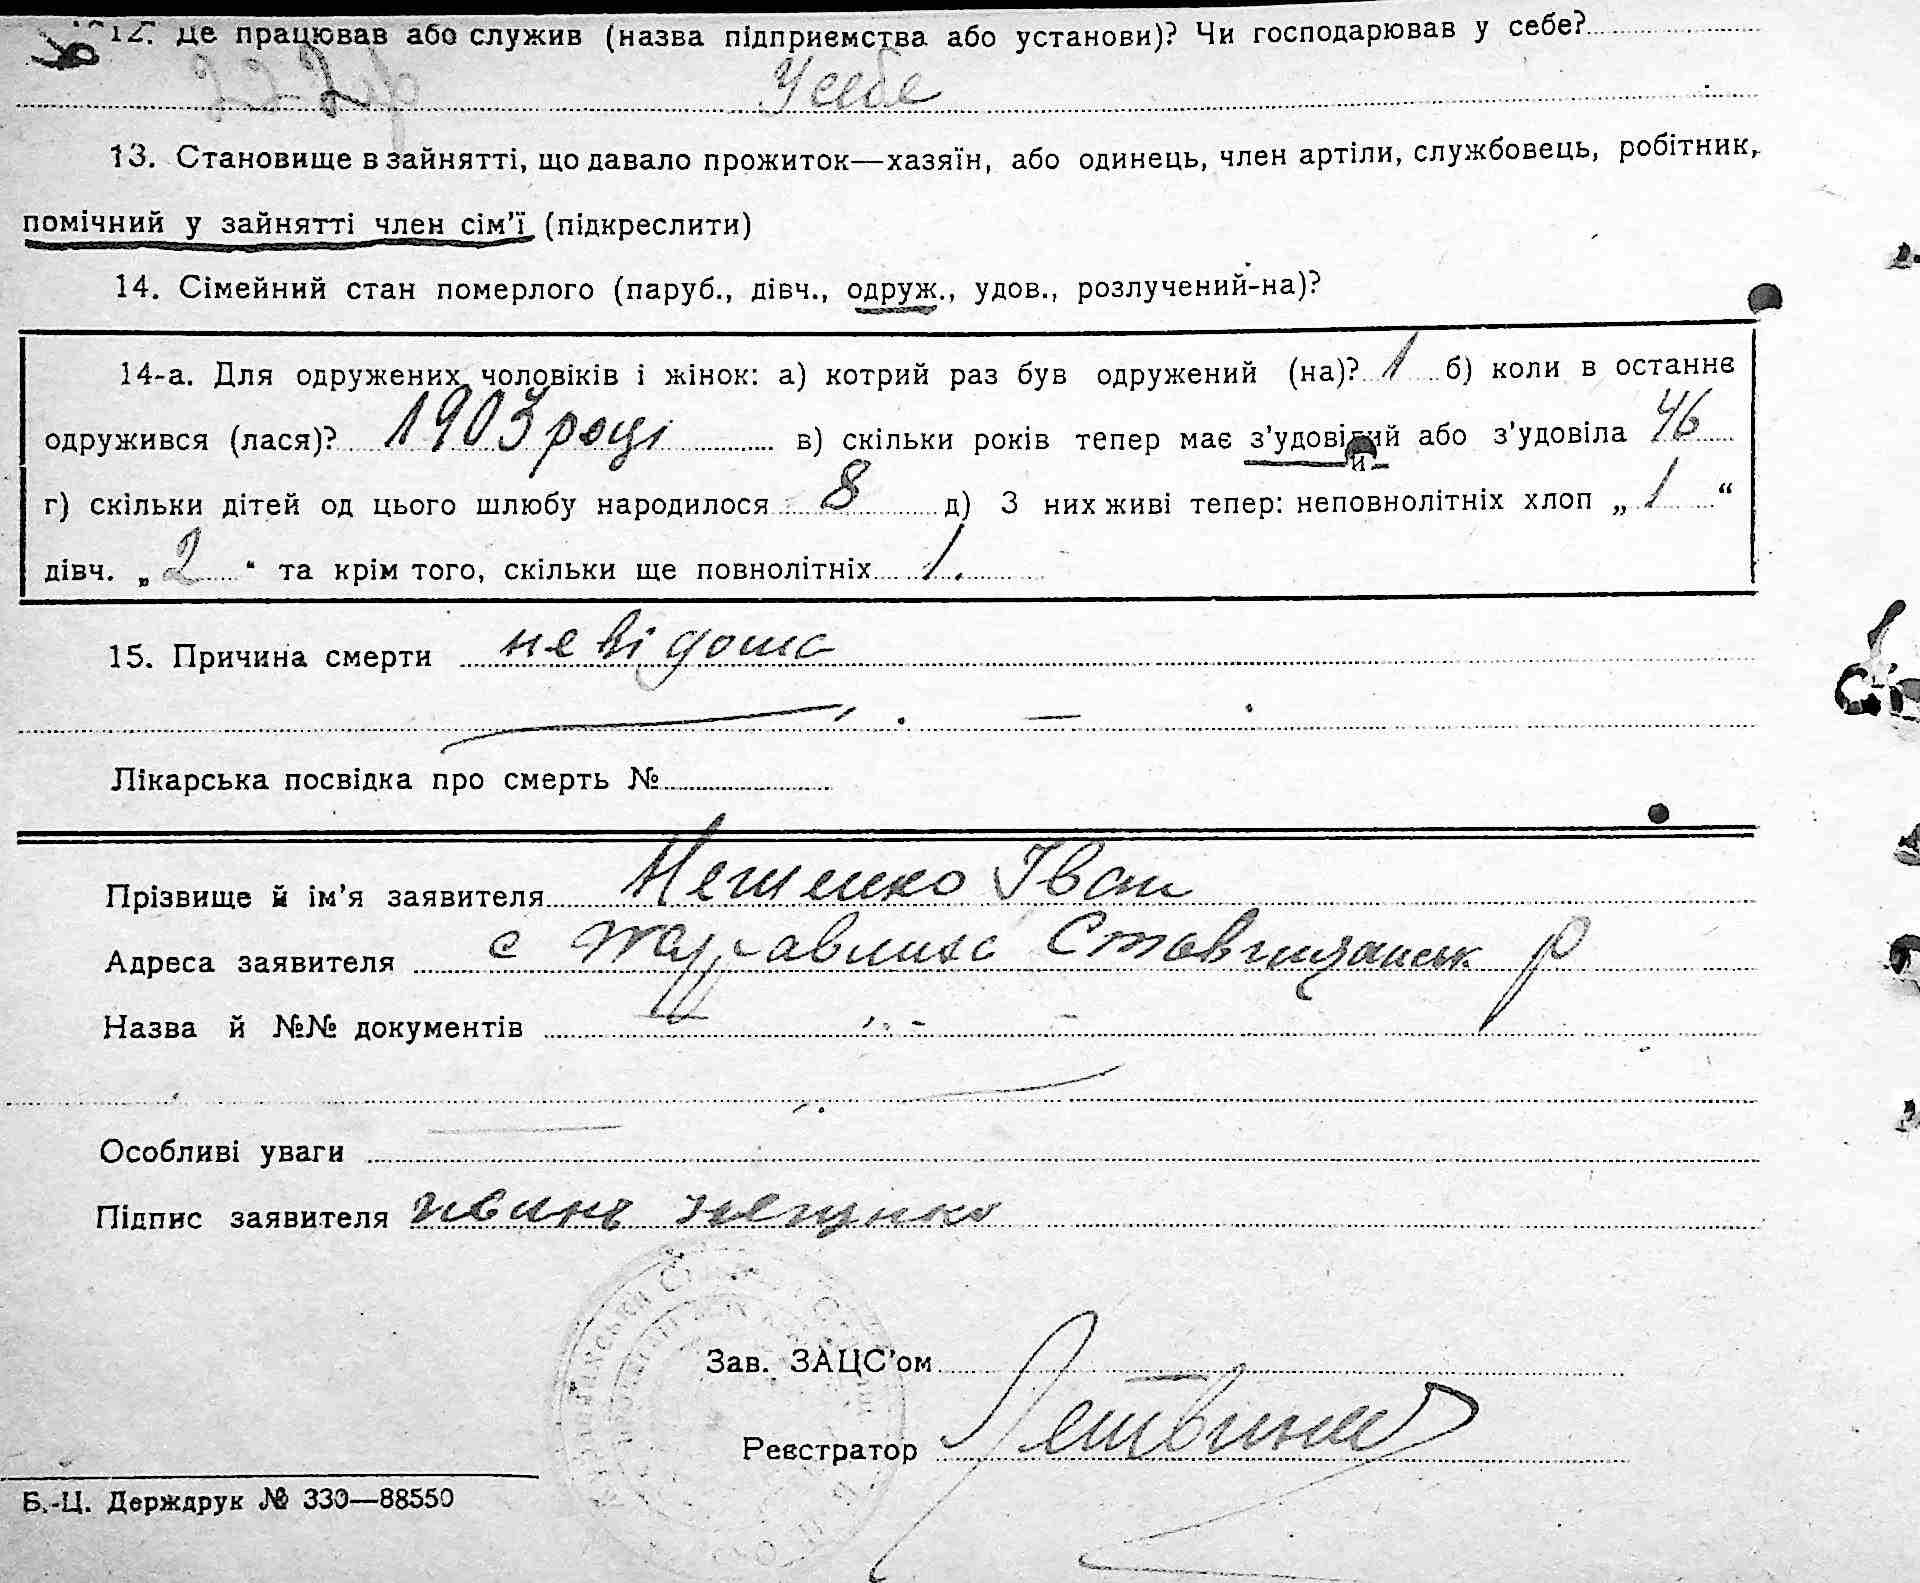 12. Де працював або служив (назва підприємства або установи)? Чи господарював у себе?
У себе
13. Становище в зайнятті, що давало прожиток—хазяїн, або одинець, член артіли, службовець, робітник,
помічний у зайнятті член сім'ї (підкреслити)
14. Сімейний стан померлого (паруб., дівч., одруж., удов., розлучений-на)?
14-а. Для одружених чоловіків і жінок: а) котрий раз був одружений (на)? 1 б) коли в останнє
одружився (лася)? 1903 році в) скільки років тепер має з'удовілий або з'удовіла 46
г) скільки дітей од цього шлюбу народилося 8 д) З них живі тепер: неповнолітніх хлоп „ 1 “
дівч. „ 2 “ та крім того, скільки ще повнолітніх 1.
15. Причина смерти невідома
Лікарська посвідка про смерть №
Прізвище й ім'я заявителя Іван
Адреса заявителя с Журавлиха р
Назва й №№ документів
Особливі уваги
Підпис заявителя
Зав. ЗАЦС'ом
Реєстратор
Б.-Ц. Держдрук № 330—88550